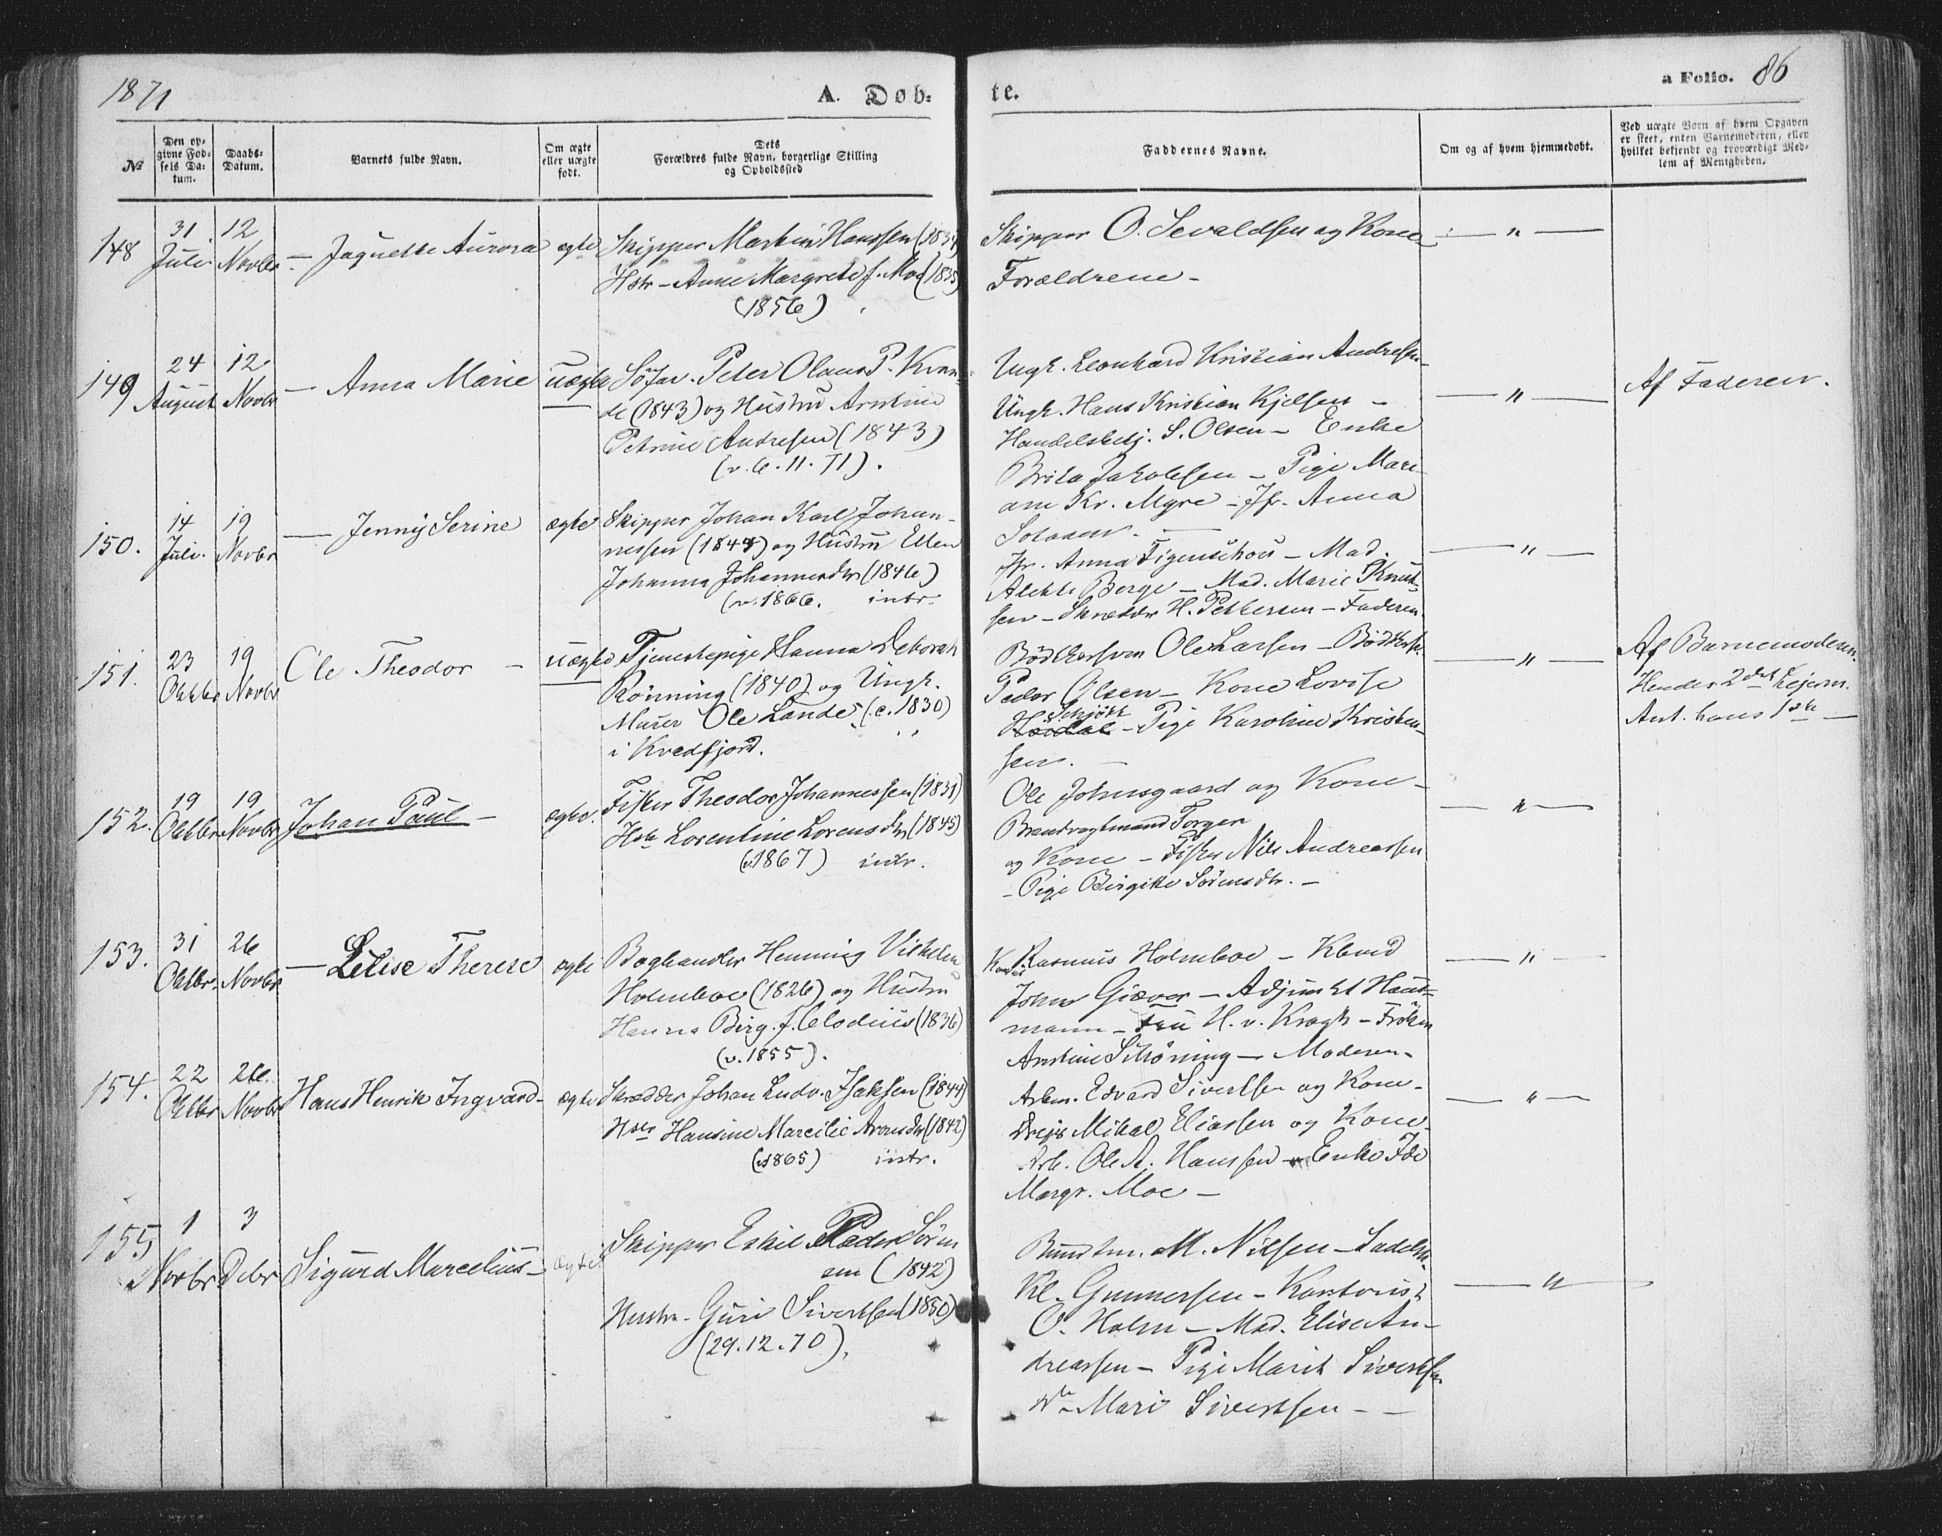 1871
A. Døb-
te.
a Folio. 86
№
Den op-
givne Fød-
sels Da-
tum.
Daabs-
Datum.
Barnets fulde Navn.
Om ægte
eller uægte
født.
Dets
Forældres fulde Navn, borgerlige Stilling
og Opholdssted
Faddernes Navne.
Om og af hvem hjemmedøbt.
Ved uægte Børn af hvem Opgaven
er skeet, enten Barnemoderen, eller
hvilket bekjendt og troværdigt Med-
lem af Menigheden.
148
31 Juli
12 Novbr
— Jaquette Aurora
ægte
Skipper Martin Hanssen
Hstr - Anne Margrete f. Moe
(1856)
Skipper O. Sevaldsen og Kone
Forældrene -
— " —
149
24 August
12 Novbr
— Anna Marie
uægte
Peter Olaus P.
de (1843) og Hustru Arntine
Petrine Andresen (1843)
(v. 6. 11. 71).
Ungk. Leonhard Kristian Andresen
Ungk. Hans Kristian Kjelsen -
S. Olsen - Enke
Brita Jakobsen - Pige Mari-
ane Kr. Myre - Jfr. Anna
— " —
Af Faderen.
150.
14 Juli.
19 Novbr
— Jenny Serine
ægte
Skipper Johan Karl Johan-
nessen og Hustru Ellen
Johanna Johannesdtr (1846)
(v. 1866. intr.
Jfr. Anna Figenschou - Mad.
Berge - Mad. Marie Knut-
sen - Skrædder H. Pettersen - Faderen.
— " —
151.
23 Oktbr
19 Novbr
Ole Theodor —
uægte
Tjenestepige Hanna Deborah
Rønning (1840) og Ungk.
Ole Lande (c. 1830)
i Kvedfjord.
Bødkersven Ole Larsen - Bødkersv.
Peder Olsen - Kone Lovise
Schjött
- Pige Karoline Kristen-
sen. -
— " —
Af Barnemoderen.
Hendes 2det Leierm.
Ant. hans 1ste —
152.
19 Oktbr
19 Novbr
Johan Paul —
ægte.
Fisker Theodor Johannessen (1831)
Hstr Lorentine Lorensdtr (1845)
(v. 1867) intr.
Ole Johnsgaard og Kone -
Brandvagtmand Torger
og Kone - Fisker Nils Andreassen
- Pige Birgitte Sørensdtr. -
— " —
153.
31 Oktbr.
26 Novbr
— Lelise Therese
ægte
Boghandler Henning Vilhelm
Holmboe (1826) og Hustru
Hanna Birg. f. Clodius (1836)
(v. 1855).
Rasmus Holmboe - Kbmd
John Giæver - Adjunkt Haus-
mann - Fru H. v. Krogh - Frøken
Arntine Schøning - Moderen -
— " —
154.
22 Oktbr
26. Novbr
Hans Henrik Ingvard -
ægte
Skrædder Johan Ludv. Isaksen (1844)
Hstr Hansine Marcilie Aronsdtr (1842)
(v. 1865) intr.
Arbm. Edvard Sivertsen og Kone -
Drejer Mikal Eliassen og Kone -
Arb. Ole A. Hanssen - Enke Ida
Margr. Moe -
— " —
155
1 Novbr
3 Debr
Sigurd Marcelius —
ægte
Skipper Eskil Peder Søren
sen (1842)
Hustru - Guri Sivertsen (1850)
(29.12.70).
M. Nilsen -
Kl. Gunnersen - Kontorist
O. Holm - Mad. Elise An-
dreassen - Pige Marit Sivertsen
Mari Sivertsen - —
— " —